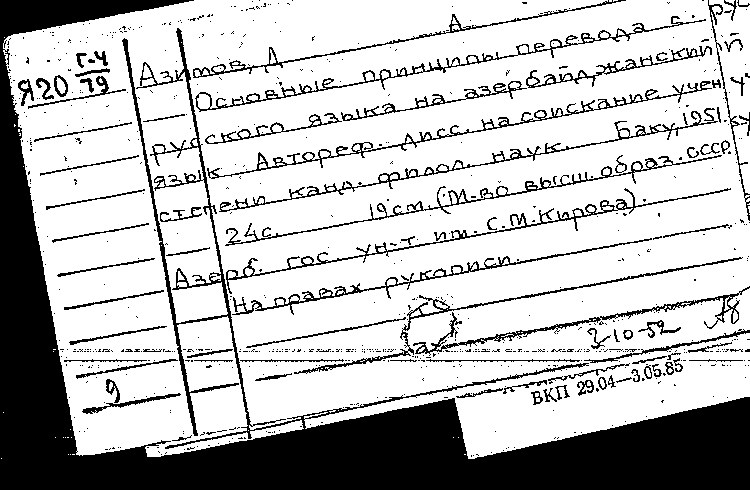 Я20 Г-4/79
Азимов, Д А.
Основные принципы перевода с
русского языка на азербайджанский
язык. Автореф. дисс. на соискание учен
степени канд. филол. наук. Баку, 1951.
24с. 19см. (М-во высш. образ. СССР
Азерб. гос. ун-т им. С.М.Кирова).
На правах рукописи.
2-10-52
9
ВКП 29.04—3.05.85